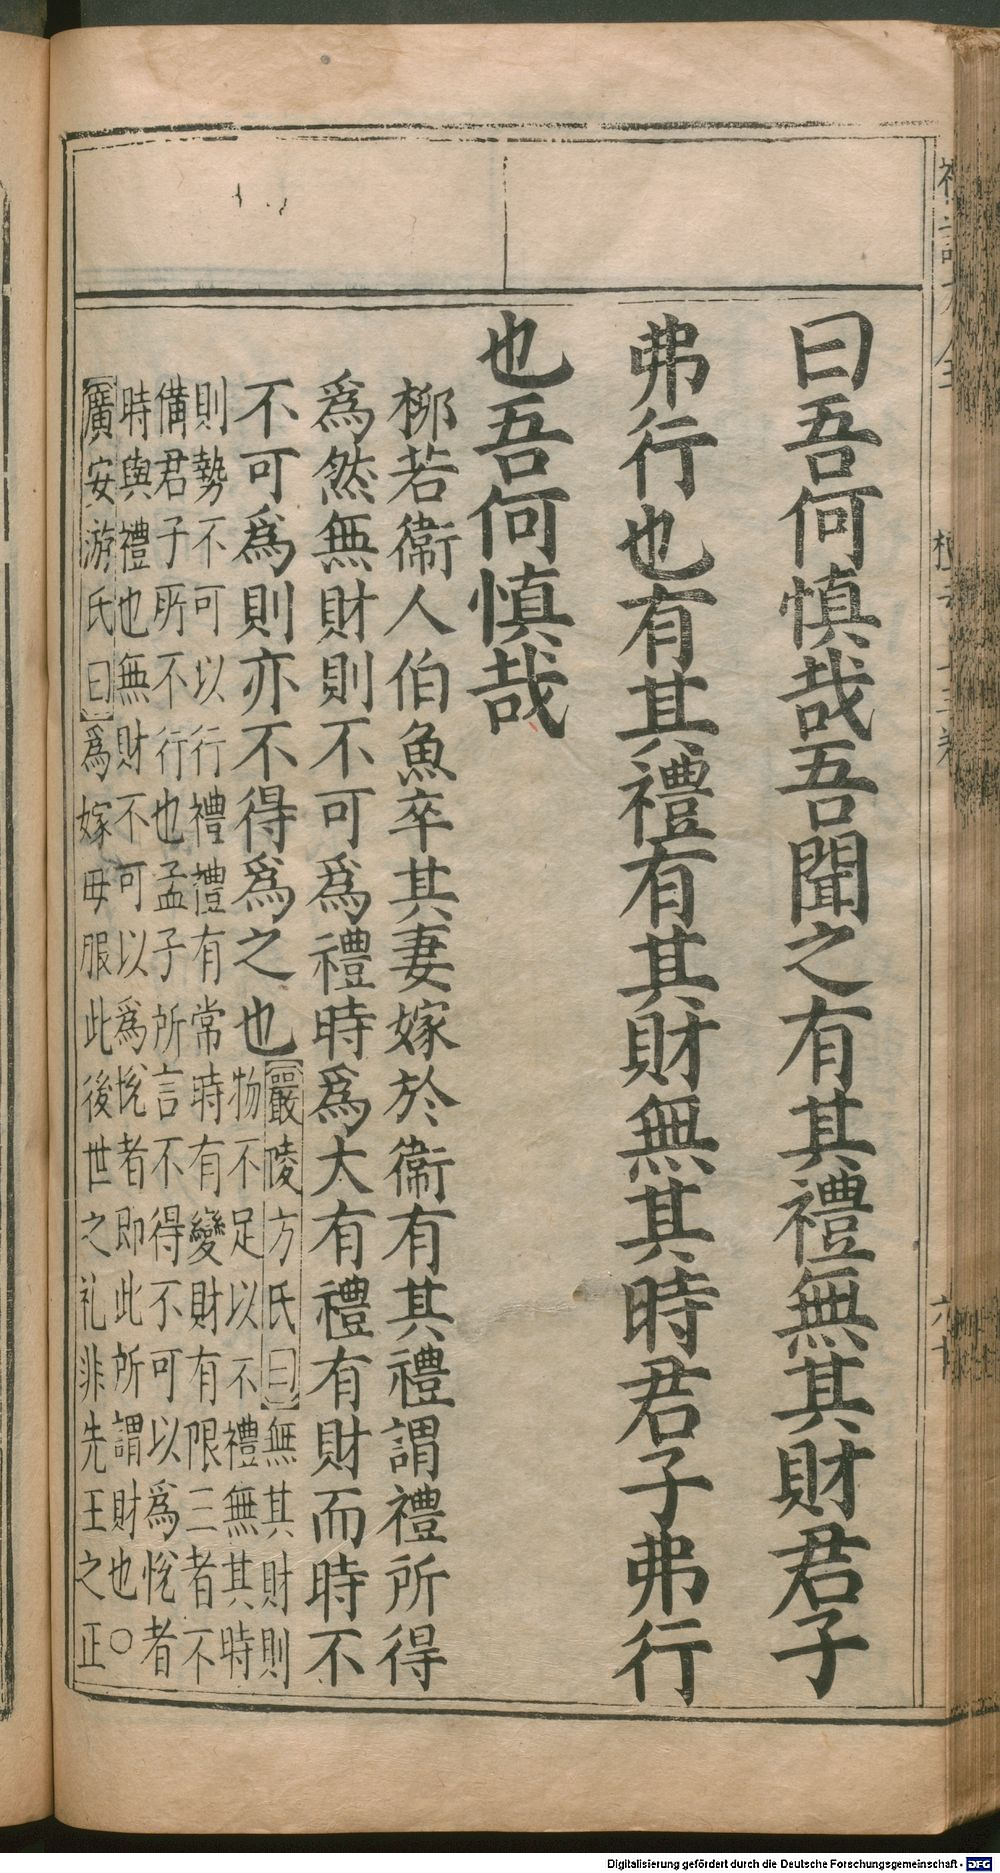 曰吾何慎哉吾聞之有其禮無其財君子
弗行也有其禮有其財無其時君子弗行
也吾何慎哉
柳若衞人伯魚卒其妻嫁於衞有其禮謂禮所得
爲然無財則不可爲禮時爲大有禮有財而時不
不可爲則亦不得爲之也
嚴陵方氏曰無其財則
物不足以不禮無其時
則勢不可以行禮禮有常時有變財有限三者不
備君子所不行也孟子所言不得不可以爲悅者
時與禮也無財不可以爲悅者即此所謂財也○
廣安游氏曰爲嫁母服此後世之礼非先王之正
Digitalisierung gefördert durch die Deutsche Forschungsgemeinschaft - DFG